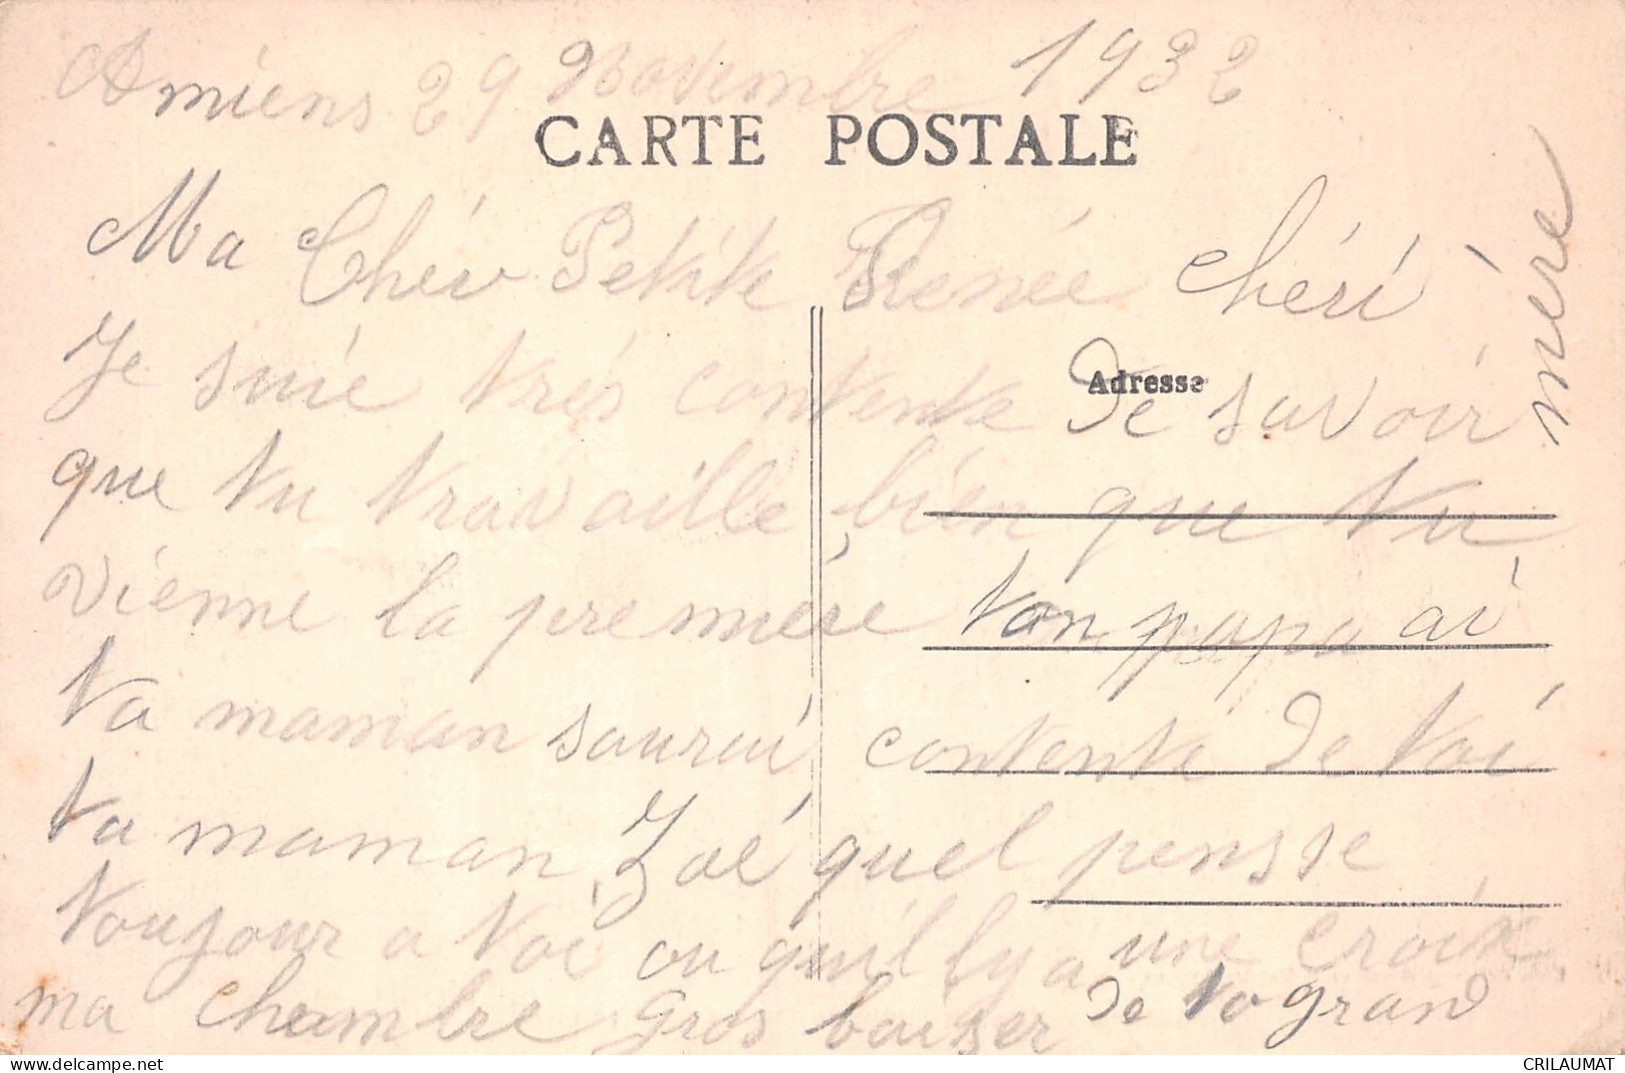 Amiens 29 Novembre 1932
CARTE POSTALE
Ma Chér Petite Renée chéri
Je suie trés contente de savoir
Adresse
que tu travaille bien que tu
vienne la premiére ton papa ai
ta maman saurai contente de toi
ta maman Zoé quel pensse
toujour a toi ou qu'il ly a une croix
ma chambre gros baiser de ta grand
mére
delcampe.net
CRILAUMAT